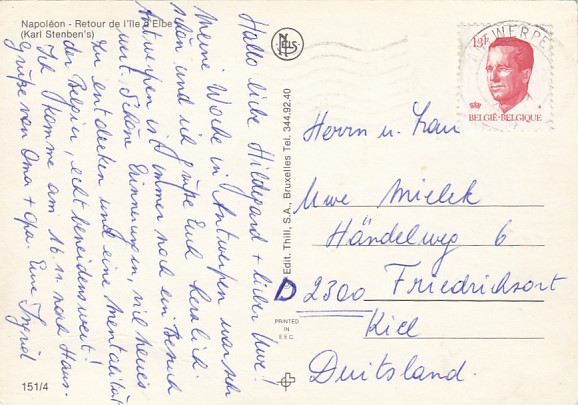 Napoléon - Retour de l'Ile d'Elbe
(Karl Stenben's)
NELS
Hallo liebe Hildegard + lieber Uwe!
Meine Woche in Antwerpen war sehr
schön und ich grüße Euch herzlich.
Antwerpen ist immer noch ein Besuch
wert. Schöne Erinnerungen, viel neues
zu entdecken und eine Mentalität
der Belgier, echt beneidenswert!
Ich komme am 16.11. nach Haus.
Grüße von Oma + Opa. Eure Ingrid
Edit. Thill, S.A., Bruxelles Tel. 344.92.40
PRINTED
IN
E.E.C.
151/4
ANTWERPEN
13F
BELGIË-BELGIQUE
Herrn u. Frau
Uwe Mielek
Händelweg 6
D 2300 Friedrichsort
Kiel
Duitsland.